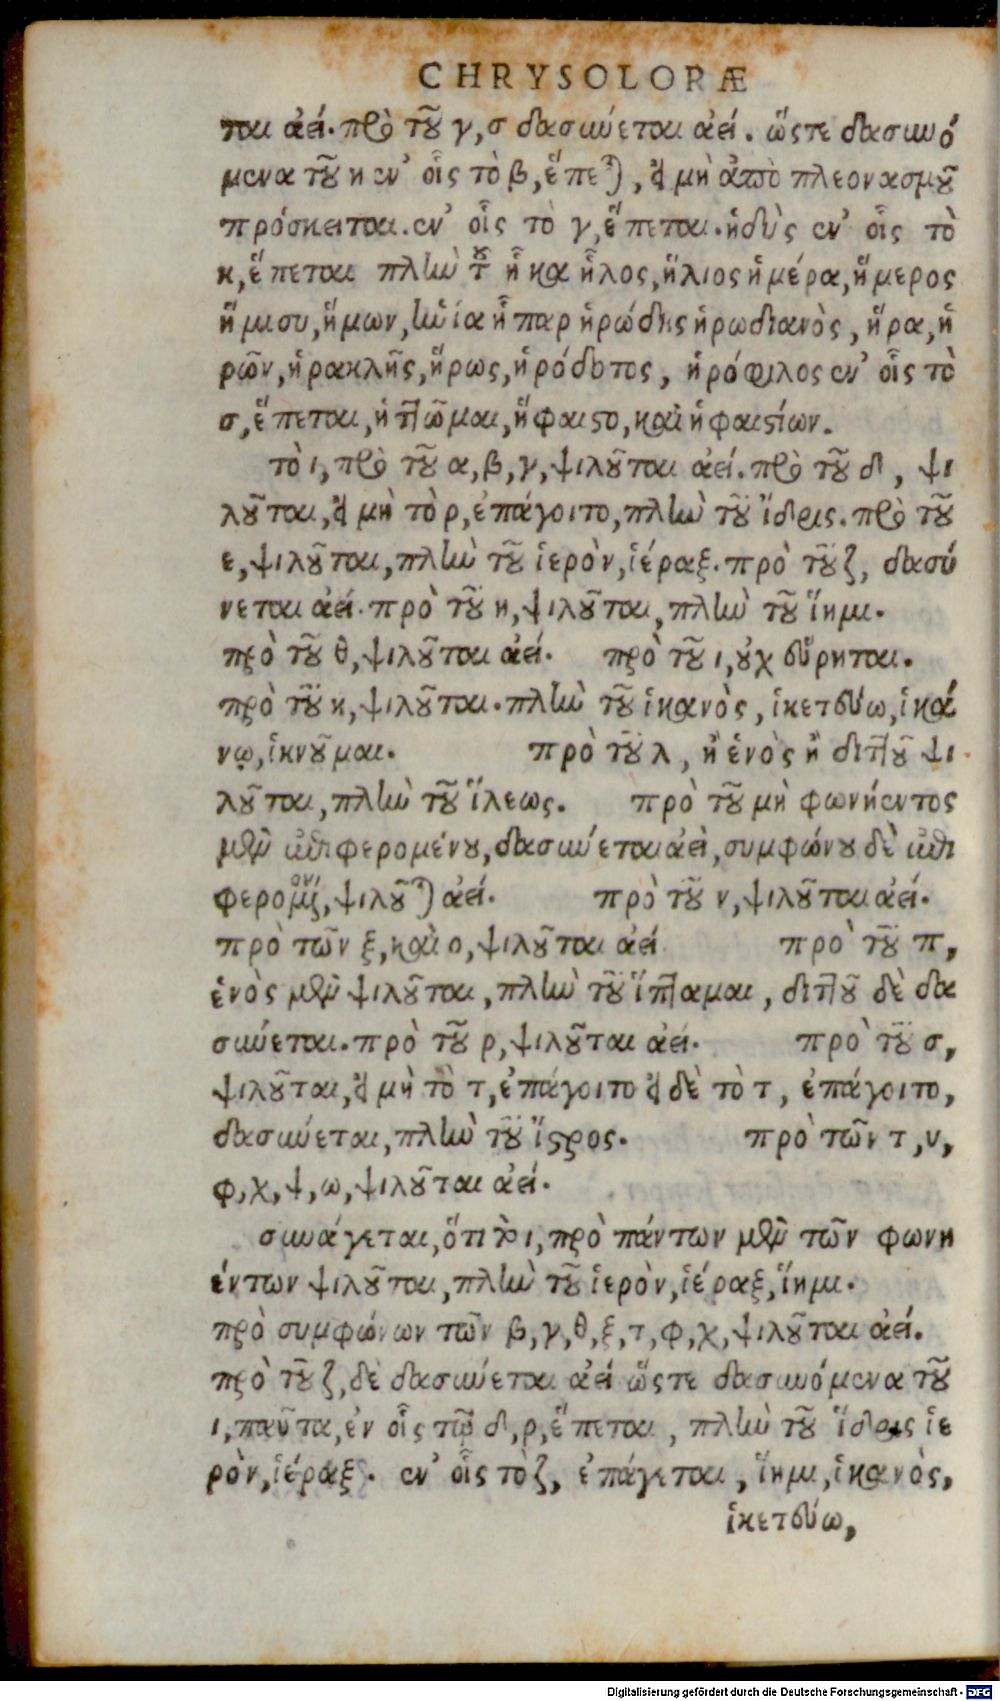 CHRYSOLORÆ
ται ἀεί. πρὸ τοῦ γ, σ δασύνεται ἀεί. ὥστε δασυνό
μενα τοῦ η ἐν οἷς τὸ β, ἕπεται, εἰ μὴ ἀπὸ πλεονασμοῦ
πρόσκειται. ἐν οἷς τὸ γ, ἕπεται. ἡδὺς ἐν οἷς τὸ
κ, ἕπεται πλὴν τοῦ ἧκα ἧλος, ἥλιος ἡμέρα, ἥμερος
ἥμισυ, ἥμων, ἡνία ἧπαρ ἡρώδης ἡρωδιανὸς, ἥρα, ἡ
ρῶν, ἡρακλῆς, ἥρως, ἡρόδοτος, ἡρόφιλος ἐν οἷς τὸ
σ, ἕπεται, ἡττῶμαι, ἥφαιστο, καὶ ἡφαιστίων.
τὸ ι, πρὸ τοῦ α, β, γ, ψιλοῦται ἀεί. πρὸ τοῦ δ, ψι
λοῦται, εἰ μὴ τὸ ρ, ἐπάγοιτο, πλὴν τοῦ ἴδρις. πρὸ τοῦ
ε, ψιλοῦται, πλὴν τοῦ ἱερὸν, ἱέραξ. πρὸ τοῦ ζ, δασύ
νεται ἀεί. πρὸ τοῦ η, ψιλοῦται, πλὴν τοῦ ἵημι.
πρὸ τοῦ θ, ψιλοῦται ἀεί. πρὸ τοῦ ι, οὐχ εὕρηται.
πρὸ τοῦ κ, ψιλοῦται. πλὴν τοῦ ἱκανὸς, ἱκετεύω, ἱκά
νω, ἱκνοῦμαι. πρὸ τοῦ λ, ἢ ἑνὸς ἢ διττοῦ ψι
λοῦται, πλὴν τοῦ ἵλεως. πρὸ τοῦ μὴ φωνήεντος
μὲν ἐπιφερομένου, δασύνεται ἀεὶ, συμφώνου δὲ ἐπι
φερομένου, ψιλοῦται ἀεί. πρὸ τοῦ ν, ψιλοῦται ἀεί.
πρὸ τῶν ξ, καὶ ο, ψιλοῦται ἀεί πρὸ τοῦ π,
ἑνὸς μὲν ψιλοῦται, πλὴν τοῦ ἵπταμαι, διττοῦ δὲ δα
σύνεται. πρὸ τοῦ ρ, ψιλοῦται ἀεί. πρὸ τοῦ σ,
ψιλοῦται, εἰ μὴ τὸ τ, ἐπάγοιτο εἰ δὲ τὸ τ, ἐπάγοιτο,
δασύνεται, πλὴν τοῦ ἴστρος. πρὸ τῶν τ, υ,
φ, χ, ψ, ω, ψιλοῦται ἀεί.
συνάγεται, ὅτι τὸ ι, πρὸ πάντων μὲν τῶν φωνη
έντων ψιλοῦται, πλὴν τοῦ ἱερὸν, ἱέραξ, ἵημι.
πρὸ συμφώνων τῶν β, γ, θ, ξ, τ, φ, χ, ψιλοῦται ἀεί.
πρὸ τοῦ ζ, δὲ δασύνεται ἀεί ὥστε δασυνόμενα τοῦ
ι, παῦτα, ἐν οἷς τῷ δ, ρ, ἕπεται, πλὴν τοῦ ἴδρις ἱε
ρὸν, ἱέραξ. ἐν οἷς τὸ ζ, ἐπάγεται, ἵημι, ἱκανὸς,
ἱκετεύω,
Digitalisierung gefördert durch die Deutsche Forschungsgemeinschaft - DFG